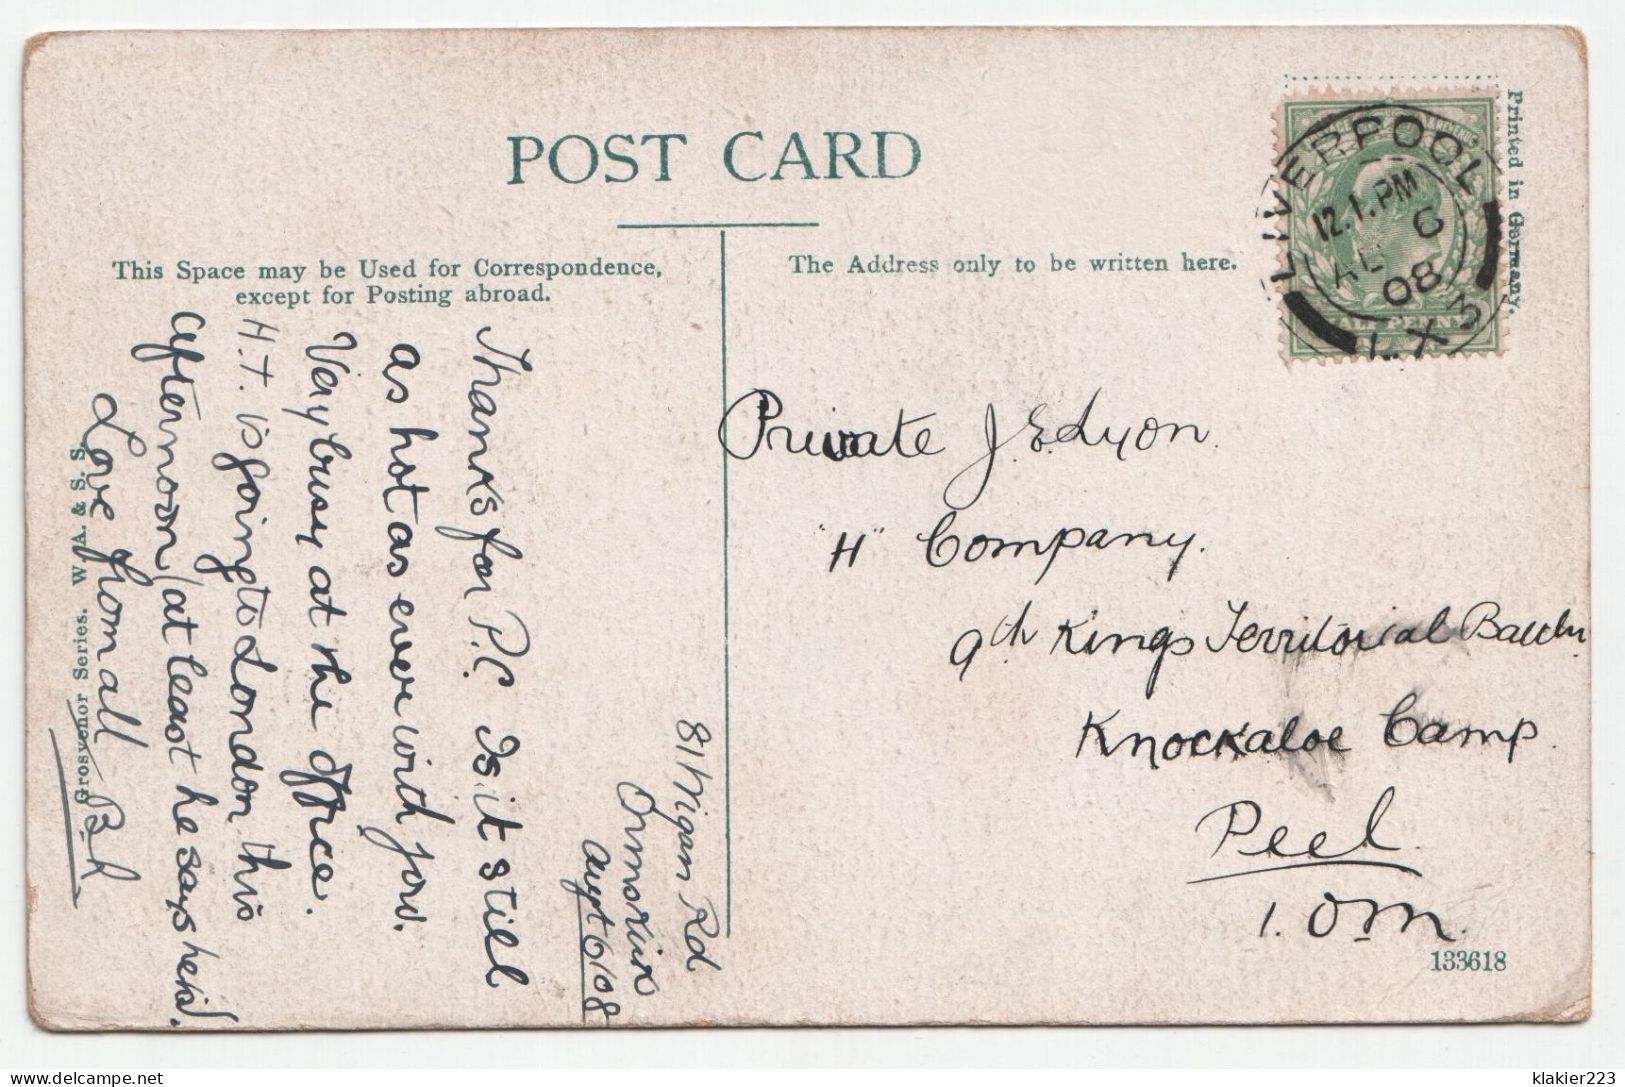 POST CARD
This Space may be Used for Correspondence,
except for Posting abroad.
The Address only to be written here.
Printed in Germany.
LIVERPOOL
12.1.PM
AU 6
08
L.X 3
HALF PENNY
81 Wigan Rd
Ormskirk
Augt 6/08
Thanks for P.C. Is it still
as hot as ever with you.
Very busy at the office.
H.T. is going to London this
afternoon (at least he says he is).
Love from all B.L
Grosvenor Series. W. A. & S. S.
Private J. E. Lyon.
"H" Company.
9th Kings Territorial
Knockaloe Camp.
Peel.
I.O.M.
133618
delcampe.net
klakier223